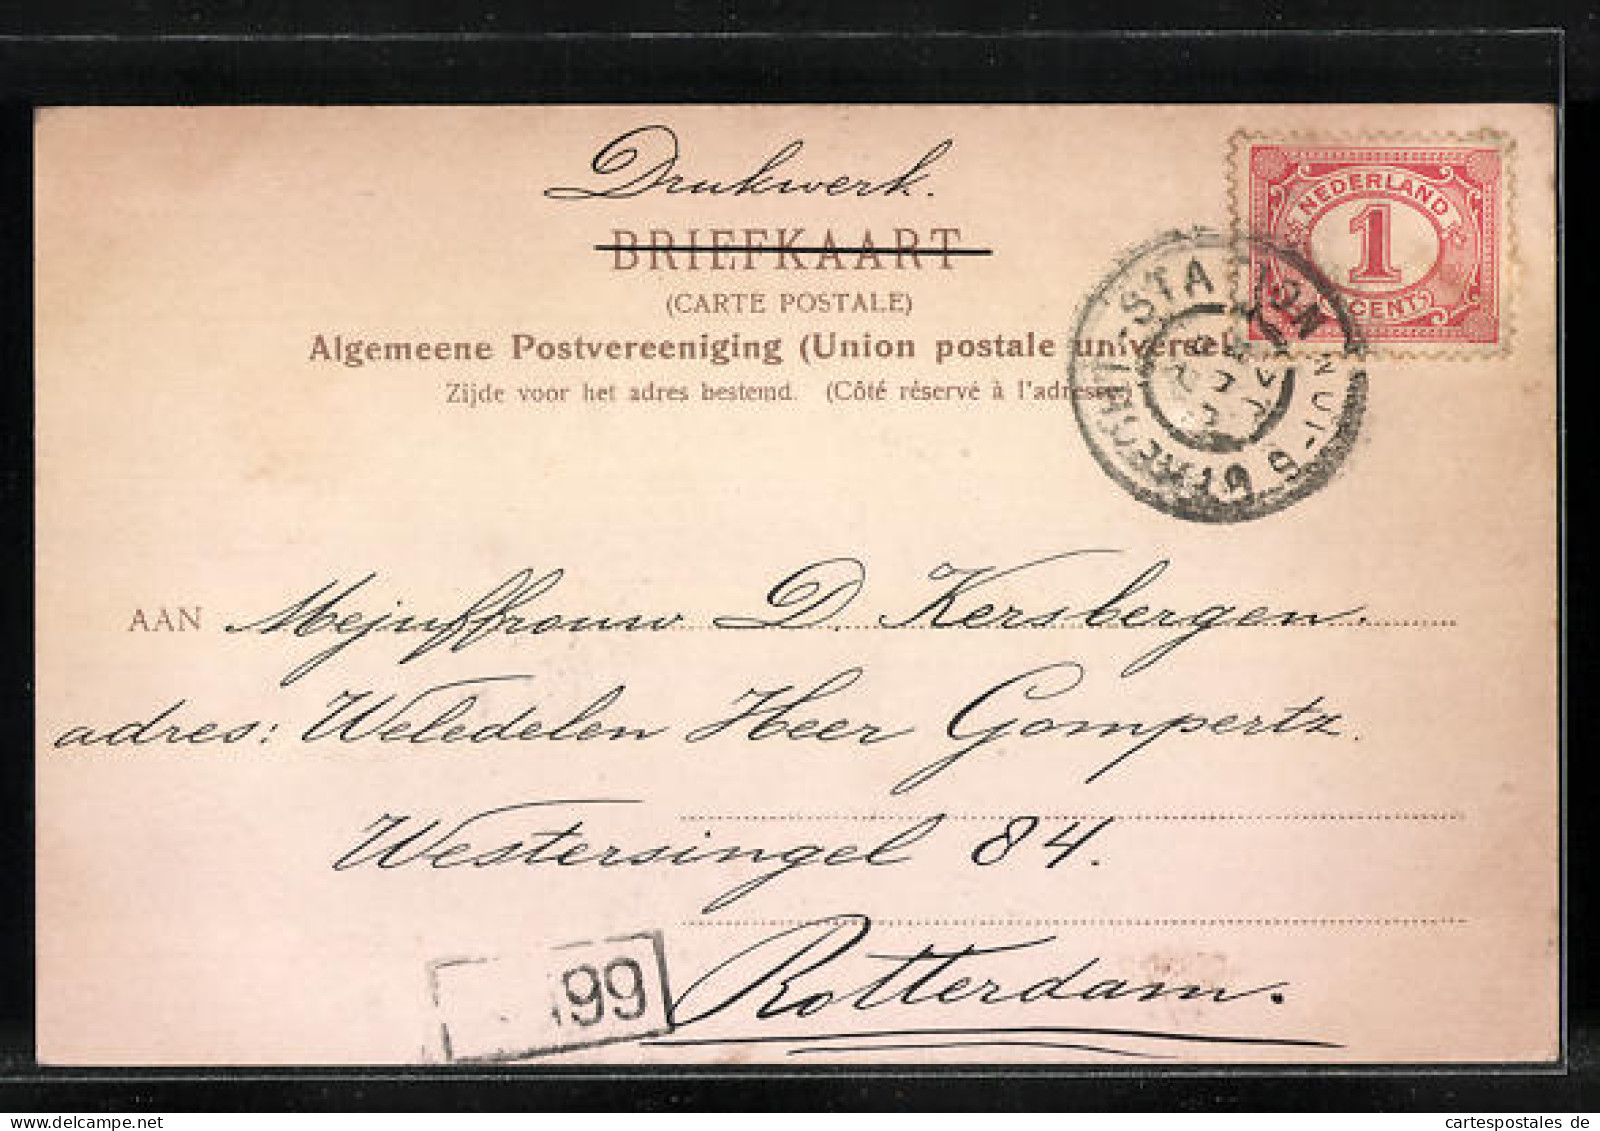 Drukwerk.
BRIEFKAART
(CARTE POSTALE)
Algemeene Postvereeniging (Union postale universel
Zijde voor het adres bestemd. (Côté réservé à l'adresse)
NEDERLAND
1
CENT
UTRECHT-STATION
AAN Mejuffrouw D. Kersbergen.
adres: Weledelen Heer Gompertz.
Westersingel 84.
Rotterdam.
99
www.delcampe.net
mbw99
cartespostales de